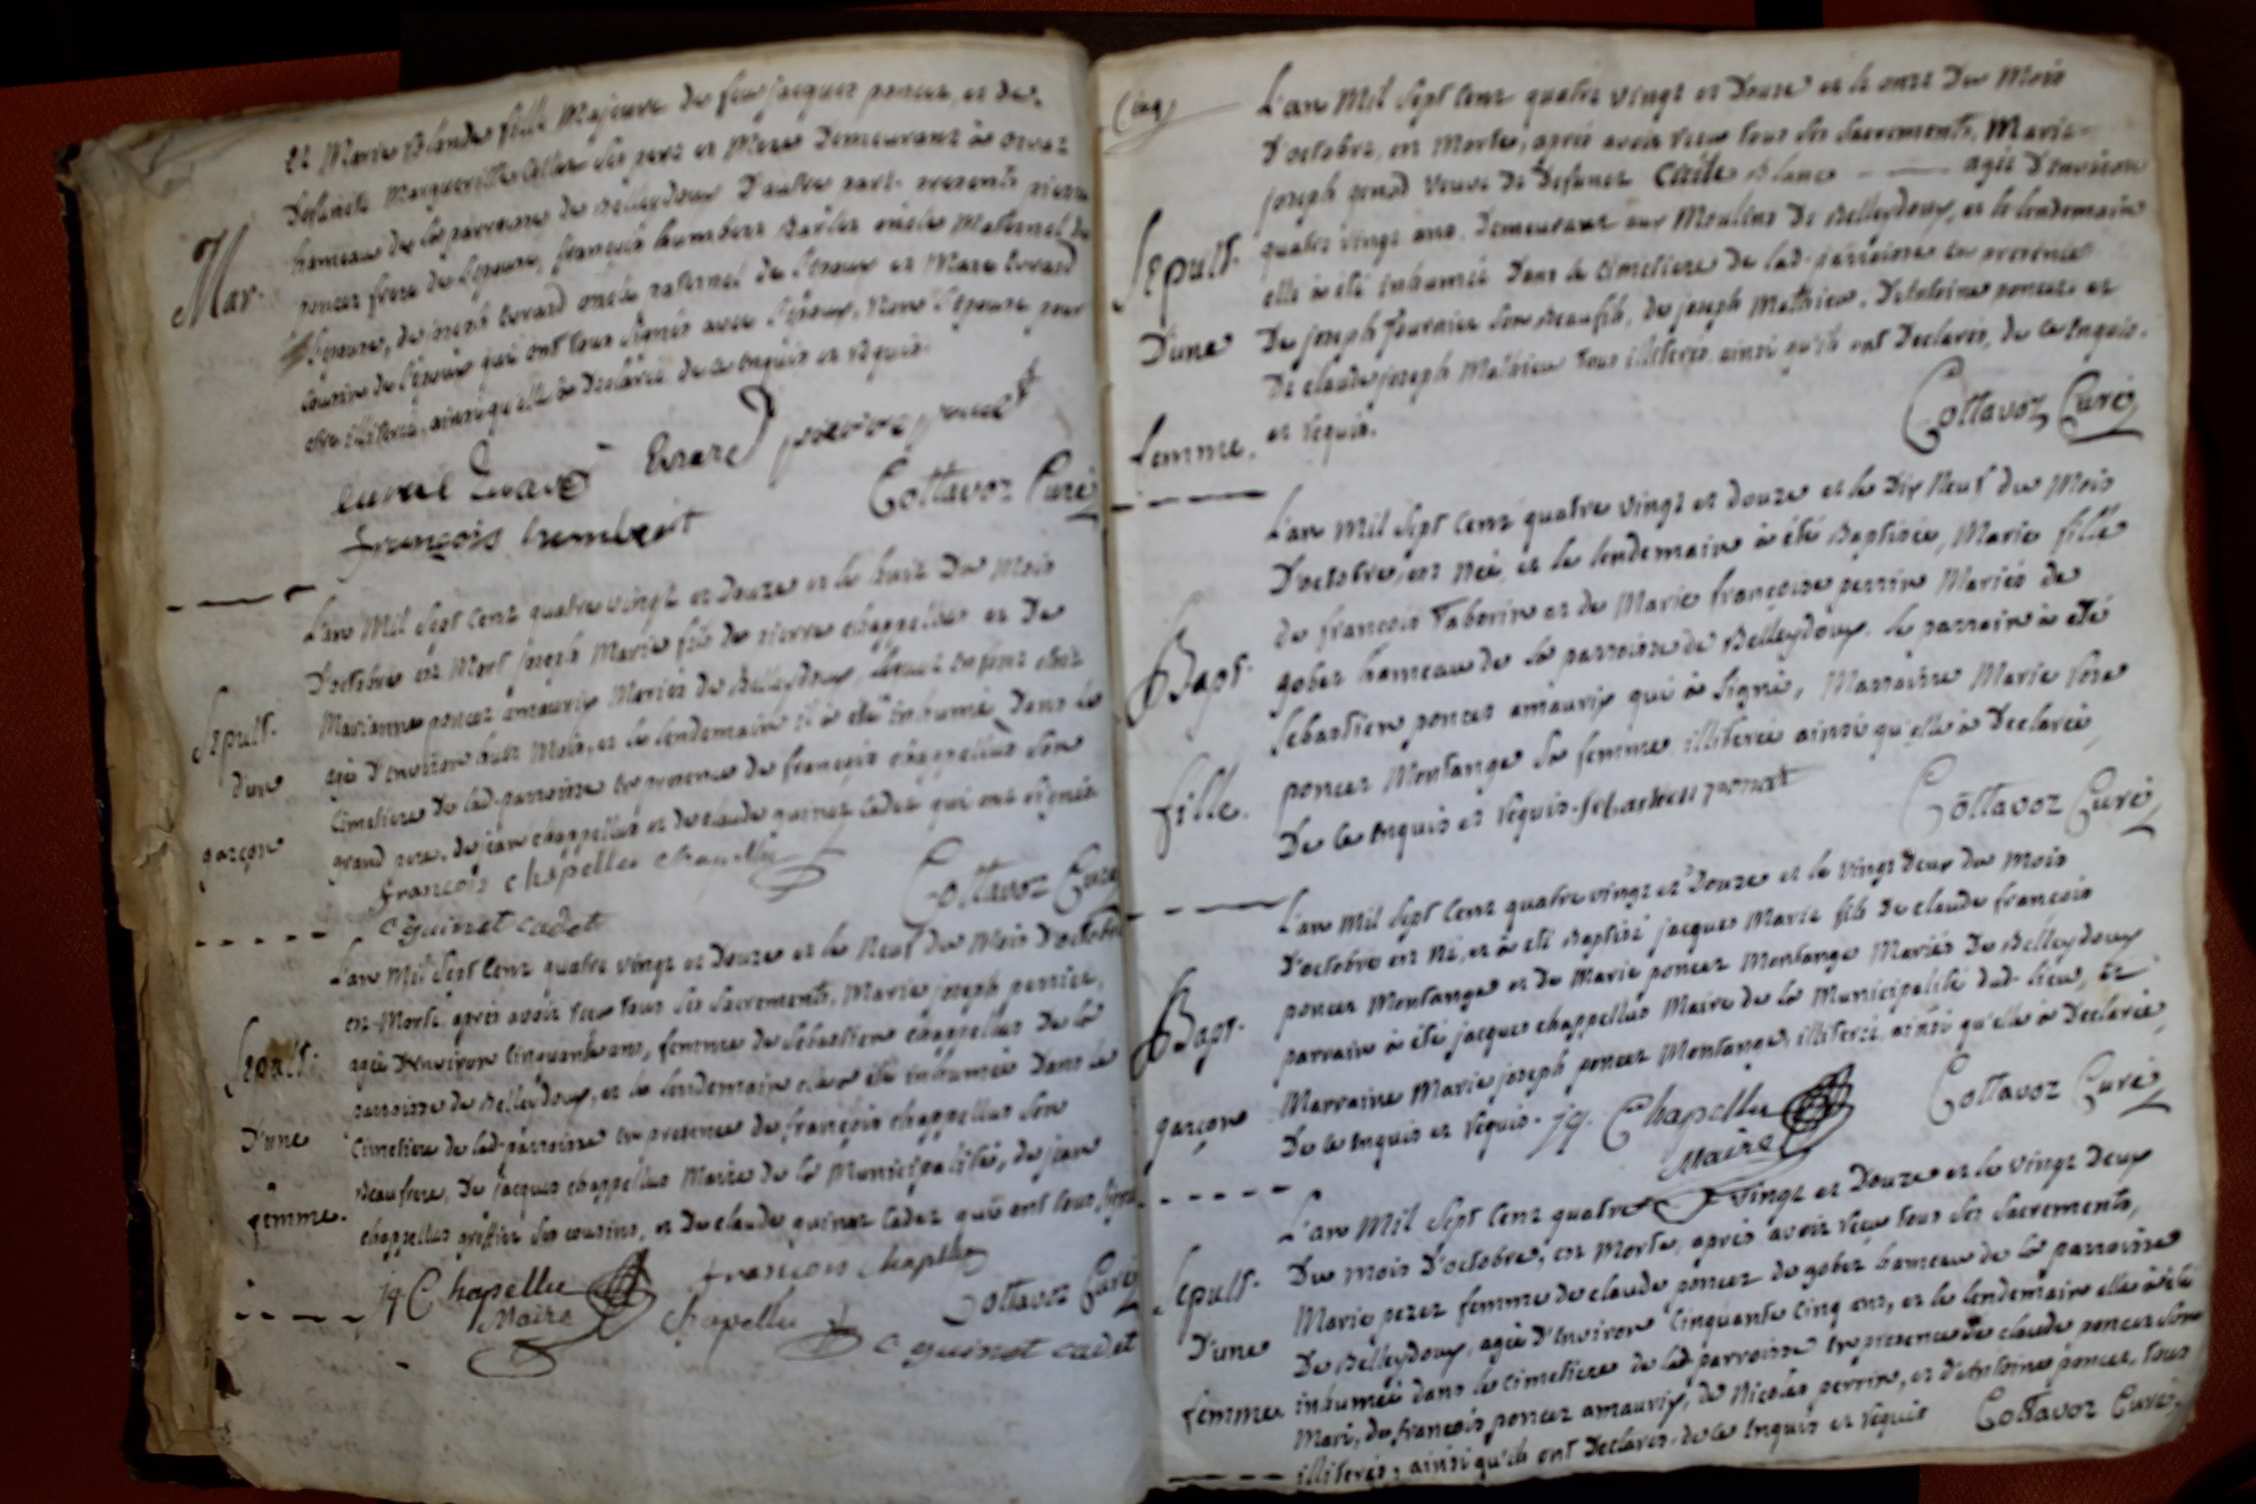 et Marie Blande fille Majeure de feu jacques poncet et de
Marguerite ses pere et Mere Demeurant à orvaz
hameau de la parroisse de Belleydoux D'autre part. presents pierre
Mar.
poncet frere de l'epouse, françois humbert Barlet oncle Maternel de
l'Epouse, de joseph Evrard oncle paternel de l'Epoux et Marc Evrard
cousin de l'epoux qui ont tous signés avec l'Epoux, Non l'Epouse pour
etre illiterée, ainsi qu'elle à Declarée de ce Enquis et requis.
Evrard
françois humbert
Cottavoz Curé
L'an Mil Sept Cent quatre vingt et douze et le huit Du Mois
D'octobre est Mort joseph Marie fils de pierre chappellus et De
Marianne poncet amaurix Mariés de Belleydoux,
Sepult.
agé D'environ huit Mois, et le lendemain il à eté inhumé Dans le
d'un
Cimetiere De lad. parroisse en presence de françois chappellus son
garçon
grand pere, de jean chappellus et de claude guinet cadet qui ont signés
françois chapellu chapellu
Cottavoz Curé
C guinet cadet
L'an Mil Sept Cent quatre vingt et Douze et le Neuf du Mois D'octobre
est Morte après avoir reçu tous ses sacrements, Marie joseph perrier,
Sepult.
agée D'environ Cinquante ans, femme de Sebastien chappellus De la
parroisse de Belleydoux, et le lendemain elle à été inhumée Dans le
D'une
Cimetiere de lad. parroisse en presence de françois chappellus son
Beaufrere, De jacques chappellus Maire de la Municipalité, de jean
femme.
chappellus greffier ses cousins, et De claude guinet Cadet qui ont tous signé
jq. Chapellu françois chapellu
Maire chapellu Cottavoz Curé
C guinet cadet
Cinq
L'an Mil Sept Cent quatre vingt et Douze et le onze Du Mois
D'octobre, est Morte, après avoir reçu tous ses sacrements, Marie-
joseph genod Veuve De Defunct Claude Blanc agée D'environ
Sepult.
quatre vingt ans, Demeurant aux Moulins De Belleydoux, et le lendemain
elle à été inhumée Dans le Cimetiere De lad. parroisse en presence
D'une
De joseph fournier son Beaufils, de joseph Mathieu, D'Antoine poncet et
De claude joseph Mathieu tous illiterés, ainsi qu'ils ont Declarés, de ce Enquis.
femme.
et requis.
Cottavoz Curé
L'an Mil Sept Cent quatre vingt et douze et le Dix Neuf du Mois
D'octobre, est Née, et le lendemain à été Baptisée, Marie fille
de françois Taborin et de Marie françoise perrin Mariés de
Bapt.
gobet hameau de la parroisse de Belleydoux. Le parrain à été
Sebastien poncet amaurix qui à signé, Marraine Marie
fille.
poncet Montange sa femme illiterée ainsi qu'elle à Declarée,
De ce Enquis et requis. Sebastien poncet
Cottavoz Curé
L'an Mil Sept Cent quatre vingt et Douze et le vingt Deux du Mois
D'octobre est Né, et à eté Baptisé jacques Marie fils De claude françois
poncet Montange et de Marie poncet Montange Mariés De Belleydoux
Bapt.
parrain à été jacques chappellus Maire de la Municipalité dud. lieu, et
Marraine Marie joseph poncet Montange, illiterée, ainsi qu'elle à Declarée,
garçon
De ce Enquis et requis. jq. Chapellu
Maire
Cottavoz Curé
L'an Mil Sept Cent quatre Vingt et Douze et le vingt Deux
Du mois D'octobre, est Morte, après avoir reçu tous ses sacrements,
Sepult.
Marie perez femme de claude poncet de gobet hameau de la parroisse
De Belleydoux, agée D'Environ Cinquante Cinq ans, et le lendemain elle à été
D'une
inhumée dans le Cimetiere de lad. parroisse en presence de claude poncet son
femme
Mari, de françois poncet amaurix, de Nicolas perrin, et D'Antoine poncet, tous
illiterés, ainsi qu'ils ont Declarés. de ce Enquis et requis Cottavoz Curé.